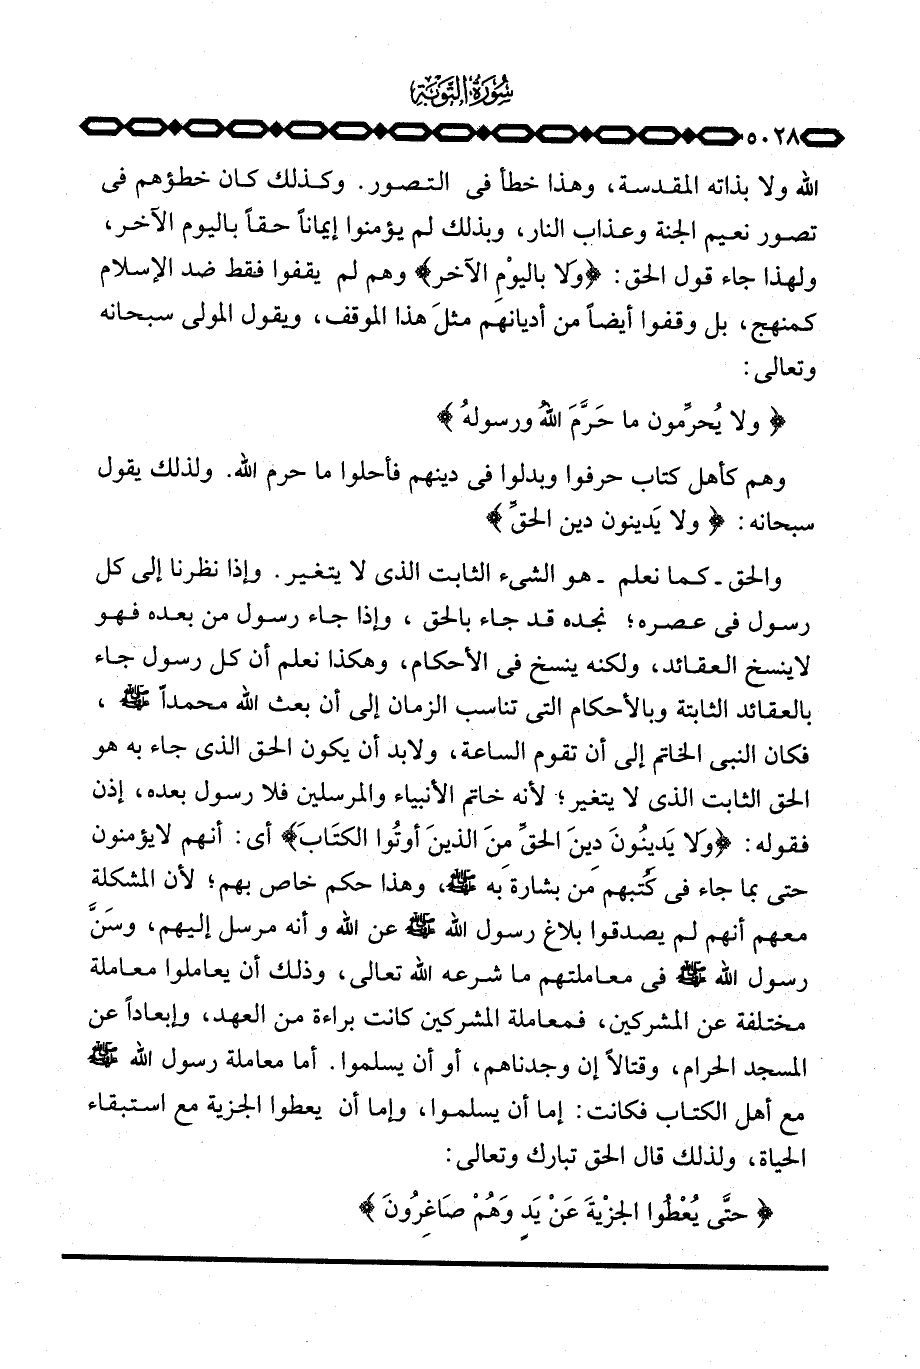 سُورَةُ التَّوبَة
٥٠٢٨
الله ولا بذاته المقدسة، وهذا خطأ فى التصور. وكذلك كان خطؤهم فى
تصور نعيم الجنة وعذاب النار، وبذلك لم يؤمنوا إيماناً حقاً باليوم الآخر،
ولهذا جاء قول الحق: ﴿وَلَا باليوْمِ الآخر﴾ وهم لم يقفوا فقط ضد الإسلام
كمنهج، بل وقفوا أيضاً من أديانهم مثلَ هذا الموقف، ويقول المولى سبحانه
وتعالى:
﴿ ولا يُحرِّمون ما حَرَّمَ اللهُ ورسولهُ ﴾
وهم كأهل كتاب حرفوا وبدلوا فى دينهم فأحلوا ما حرم الله. ولذلك يقول
سبحانه: ﴿ ولا يَدينون دين الحقِّ ﴾
والحق ـ كما نعلم ـ هو الشىء الثابت الذى لا يتغير. وإذا نظرنا إلى كل
رسول فى عصره؛ نجده قد جاء بالحق ، وإذا جاء رسول من بعده فهو
لاينسخ العقائد، ولكنه ينسخ فى الأحكام، وهكذا نعلم أن كل رسول جاء
بالعقائد الثابتة وبالأحكام التى تناسب الزمان إلى أن بعث الله محمداً ﷺ ،
فكان النبى الخاتم إلى أن تقوم الساعة، ولابد أن يكون الحق الذى جاء به هو
الحق الثابت الذى لا يتغير؛ لأنه خاتم الأنبياء والمرسلين فلا رسول بعده، إذن
فقوله: ﴿وَلَا يَدِينُونَ دِينَ الحَقِّ مِنَ الذينَ أوتُوا الكتَابَ﴾ أى: أنهم لايؤمنون
حتى بما جاء فى كُتبهم مِن بشارة به ﷺ، وهذا حكم خاص بهم؛ لأن المشكلة
معهم أنهم لم يصدقوا بلاغ رسول الله ﷺ عن الله و أنه مرسل إليهم، وسَنَّ
رسول الله ﷺ فى معاملتهم ما شرعه الله تعالى، وذلك أن يعاملوا معاملة
مختلفة عن المشركين، فمعاملة المشركين كانت براءة من العهد، وإبعاداً عن
المسجد الحرام، وقتالاً إن وجدناهم، أو أن يسلموا. أما معاملة رسول الله ﷺ
مع أهل الكتاب فكانت: إما أن يسلموا، وإما أن يعطوا الجزية مع استبقاء
الحياة، ولذلك قال الحق تبارك وتعالى:
﴿ حتَّى يُعْطُوا الجزْيةَ عَنْ يَدٍ وَهُمْ صَاغِرُونَ ﴾